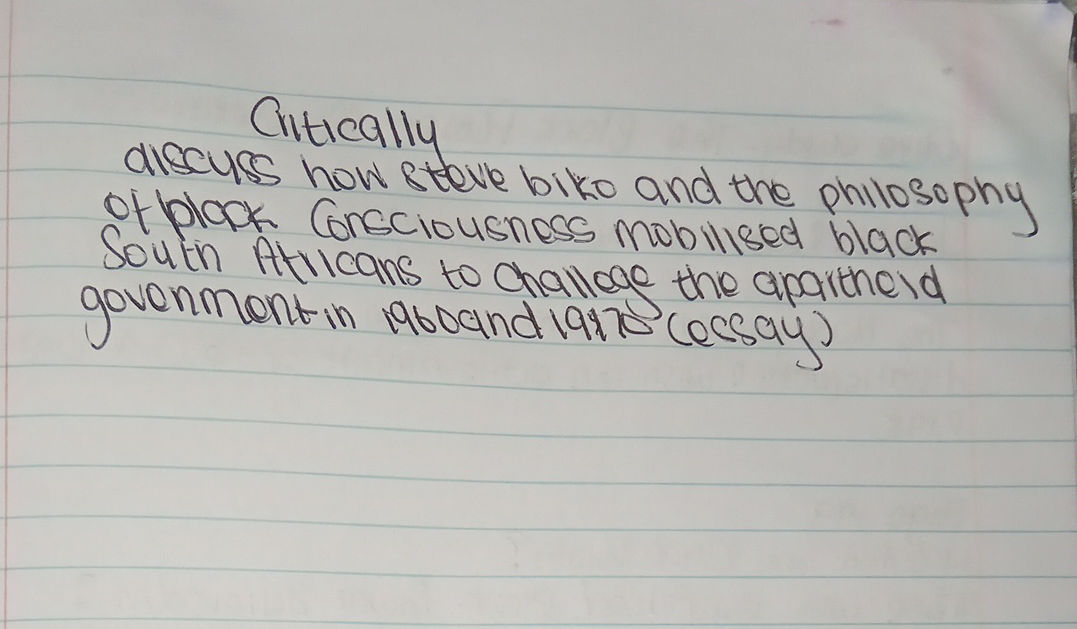 Critically
discuss how steve biko and the philosophy
of black Consciousness mobilised black
South Africans to challege the apartheid
govenment in 1960 and 1970 (essay)